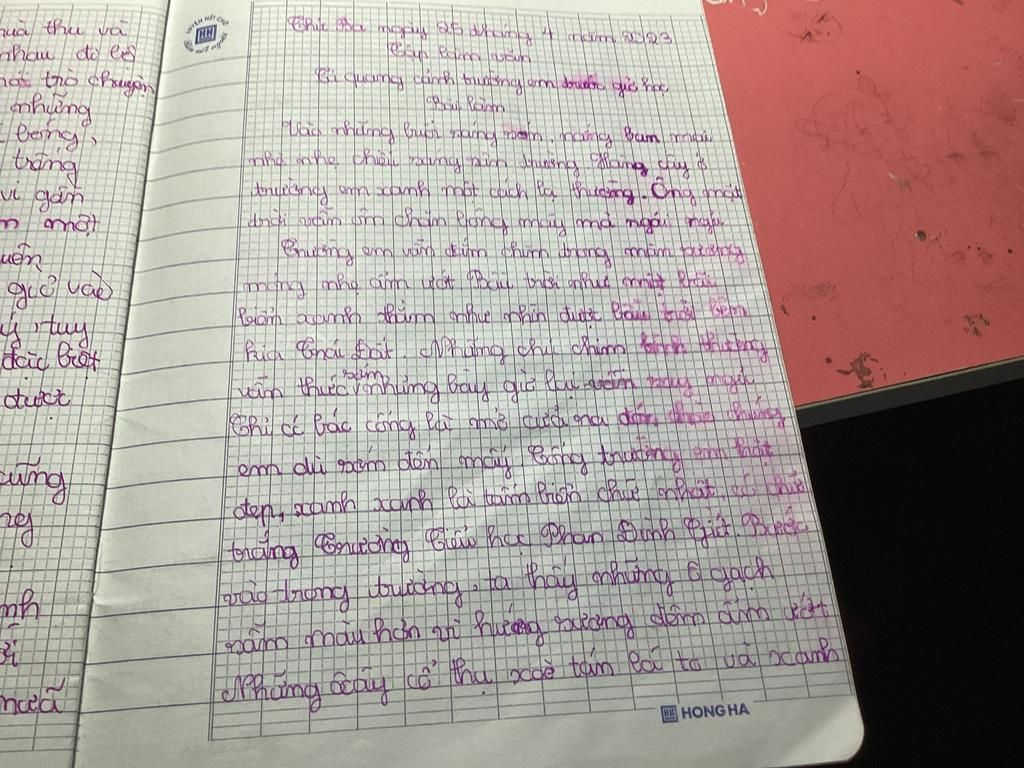 uà thu và
nhau để
trò chuyện
những
bóng,
trắng
vì gần
một
giờ vào
tuy
đặc biệt
được
cũng
HH
Thứ ba ngày 25 tháng 4 năm 2023
Tập làm văn
Tả quang cảnh trường em trước giờ học
Bài làm
Vào những buổi sáng sớm, nắng ban mai
nhẹ nhẹ chiếu xuống sân trường. Hàng cây ở
trường em xanh một cách lạ thường. Ông mặt
trời vẫn còn chăm bông mây mà ngái ngủ.
Trường em vẫn đắm chìm trong màn sương
mỏng nhẹ ẩm ướt. Bầu trời như một bãi
biển xanh thẳm như nhìn được bầu trời bên
kia Trái Đất. Những chú chim bình thường
vẫn thức sớm nhưng bây giờ lại vẫn say ngủ.
Chỉ có bác cổng là mở cửa ra đón
em dù sớm đến mấy. Cổng trường em thật
đẹp, xanh xanh là tấm biển chữ nhật có chữ
trắng Trường Tiểu học Phan Đình Giót. Bước
vào trong trường, ta thấy những ô gạch
sẫm màu hơn vì hướng sương đêm ẩm ướt.
Những cây cổ thụ xoè tán lá to và xanh
HH HONG HA